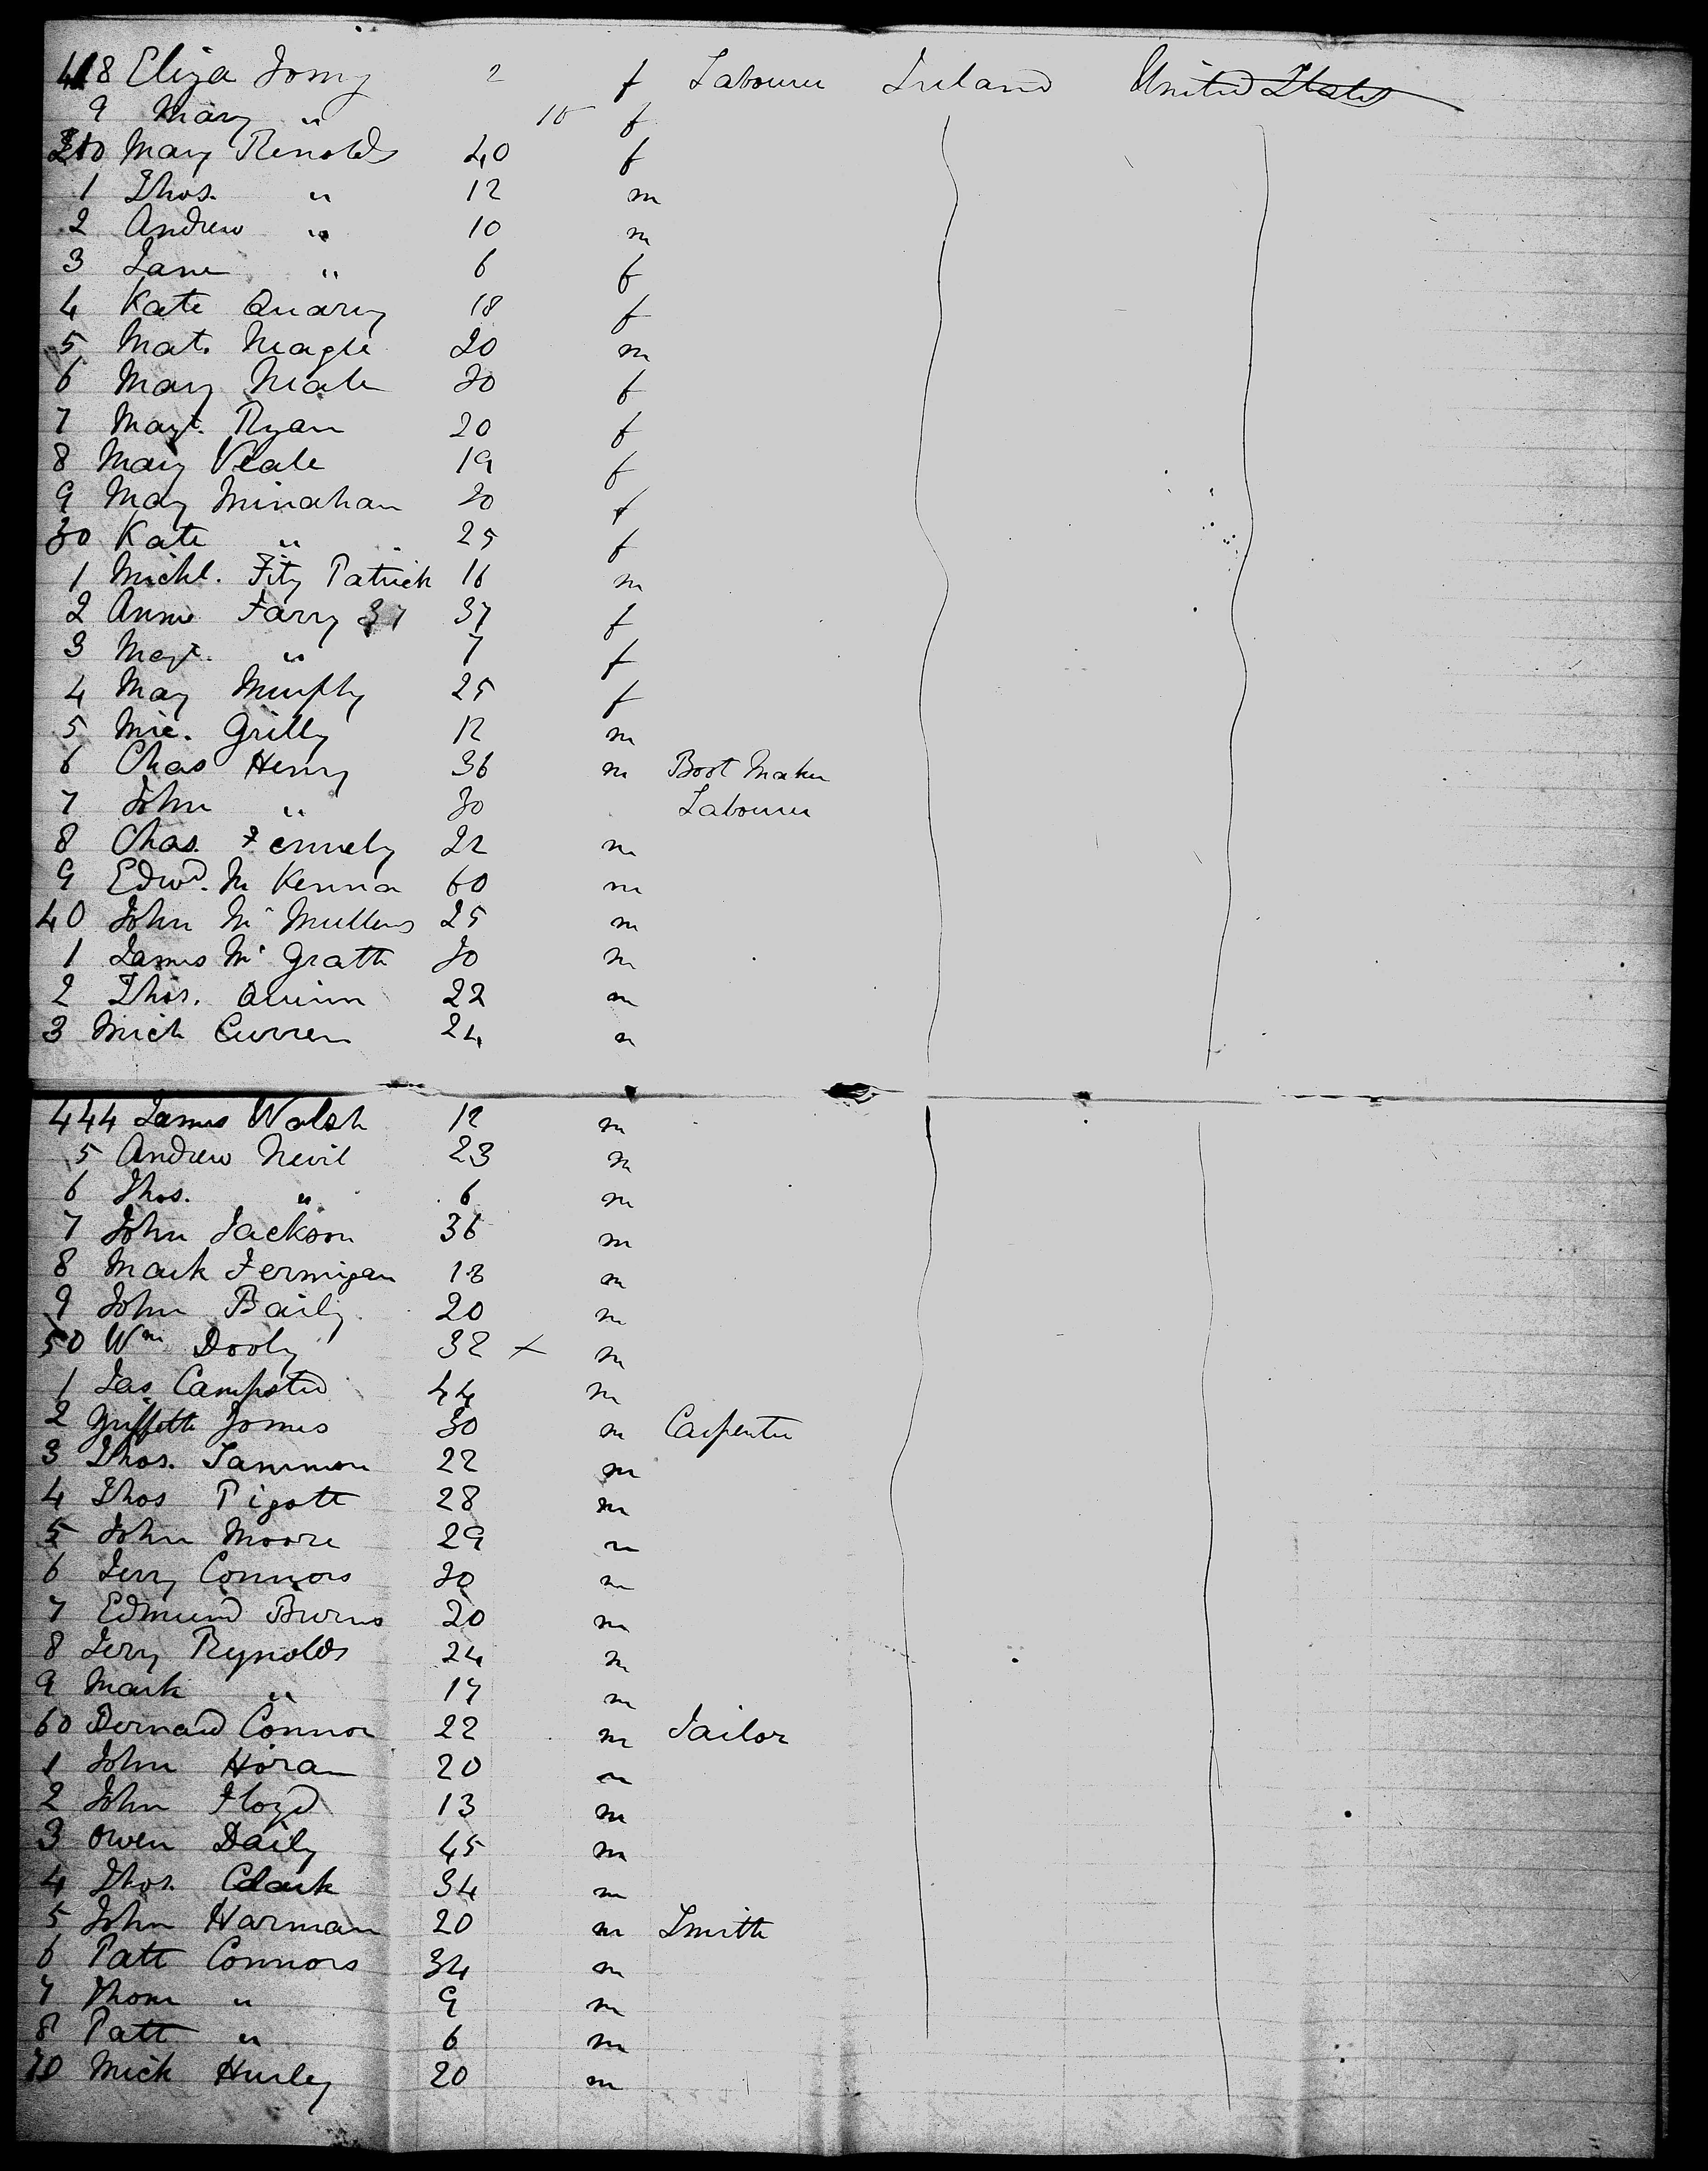 418 Eliza Jomy 2 f Labourer Ireland United States
9 Mary " 10 f
210 Mary Renolds 40 f
1 Thos. " 12 m
2 Andrew " 10 m
3 Jane " 6 f
4 Kate Quarry 18 f
5 Mat. Neagle 20 m
6 Mary Neale 30 f
7 Magt. Ryan 20 f
8 Mary Veale 19 f
9 Mary Minahan 20 f
30 Kate " 25 f
1 Michl. Fitz Patrick 16 m
2 Annie Farry 37 37 f
3 Magt. " 7 f
4 Mary Murphy 25 f
5 Mic. Grilly 12 m
6 Chas Henry 36 m Boot Maker
7 John " 30 Labourer
8 Chas. Fennely 22 m
9 Edwd. Mc Kenna 60 m
40 John Mc Mullens 25 m
1 James Mc Grath 30 m
2 Thos. Quinn 22 m
3 Mich Curren 24 m
444 James Walsh 12 m
5 Andrew Nevil 23 m
6 Thos. " 6 m
7 John Jackson 36 m
8 Mark Fermigan 18 m
9 John Baily 20 m
50 Wm Dooly 32 x m
1 Jas Campsted 44 m
2 Griffeth Jones 30 m Carpenter
3 Thos. Sammon 22 m
4 Thos Pigott 28 m
5 John Moore 29 m
6 Jerry Connors 30 m
7 Edmund Burns 20 m
8 Jerry Reynolds 24 m
9 Mark " 17 m
60 Bernard Connor 22 m Tailor
1 John Horan 20 m
2 John Floyd 13 m
3 Owen Daily 45 m
4 Thos. Clark 34 m
5 John Harman 20 m Smith
6 Patt Connors 34 m
7 Thom " 9 m
8 Patt " 6 m
70 Mick Hurley 20 m